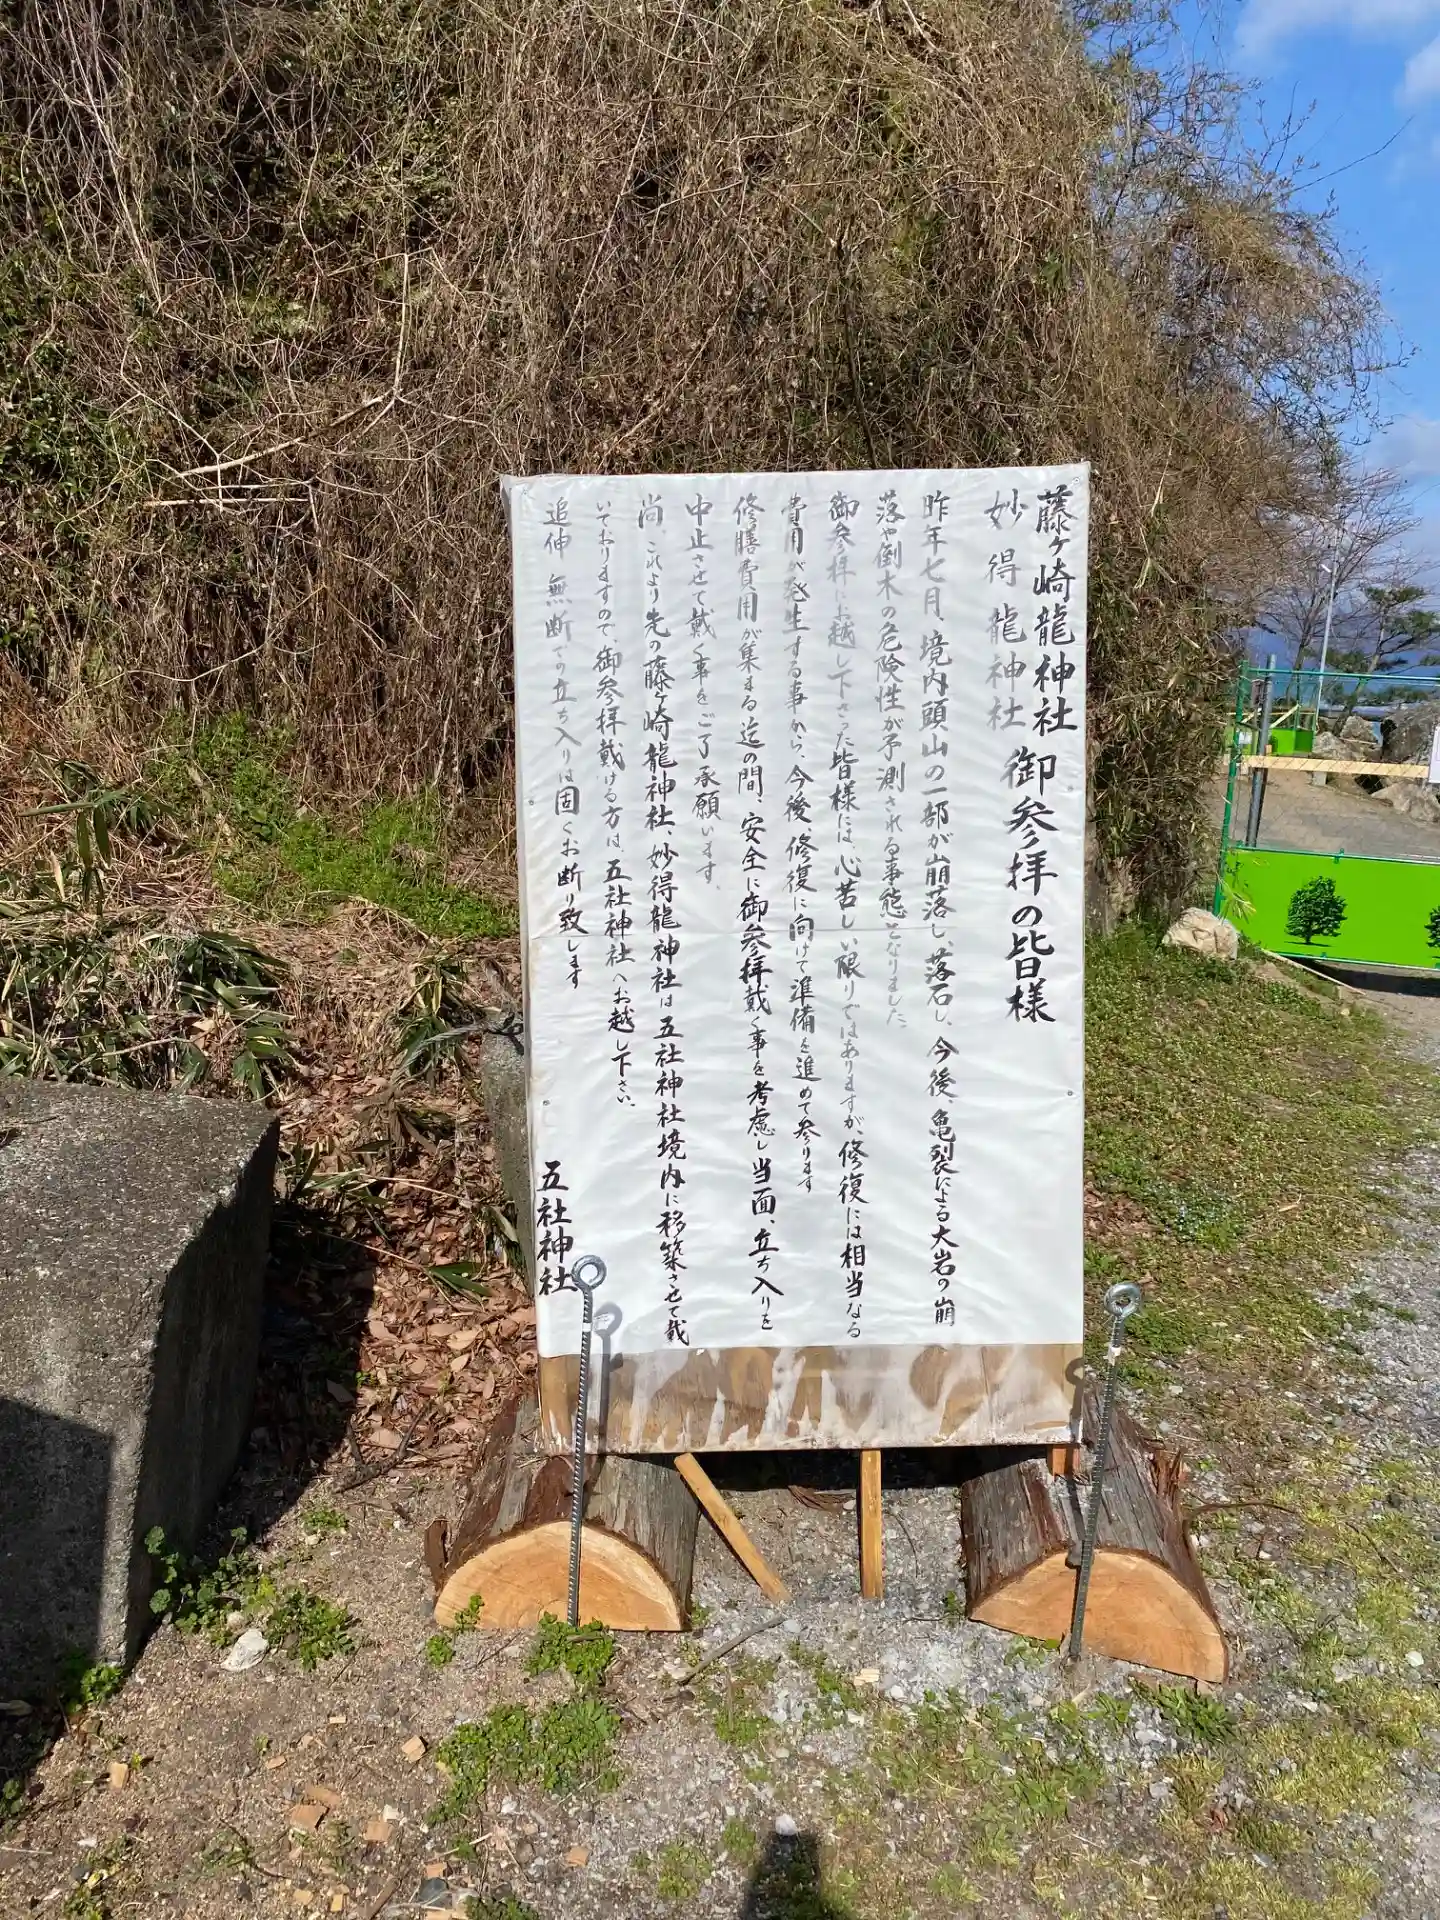 藤ヶ崎龍神社
妙得龍神社
御参拝の皆様
昨年七月、境内頭山の一部が崩落し、落石し、今後、亀裂による大岩の崩
落や倒木の危険性が予測される事態となりました。
御参拝にお越し下さった皆様には、心苦しい限りではありますが、修復には相当なる
費用が発生する事から、今後、修復に向けて準備を進めて参ります
修繕費用が集まる迄の間、安全に御参拝戴く事を考慮し当面、立ち入りを
中止させて戴く事をご了承願います。
尚、これより先の藤ヶ崎龍神社、妙得龍神社は五社神社境内に移築させて戴
いておりますので、御参拝戴ける方は、五社神社へお越し下さい。
追伸 無断での立ち入りは固くお断り致します
五社神社